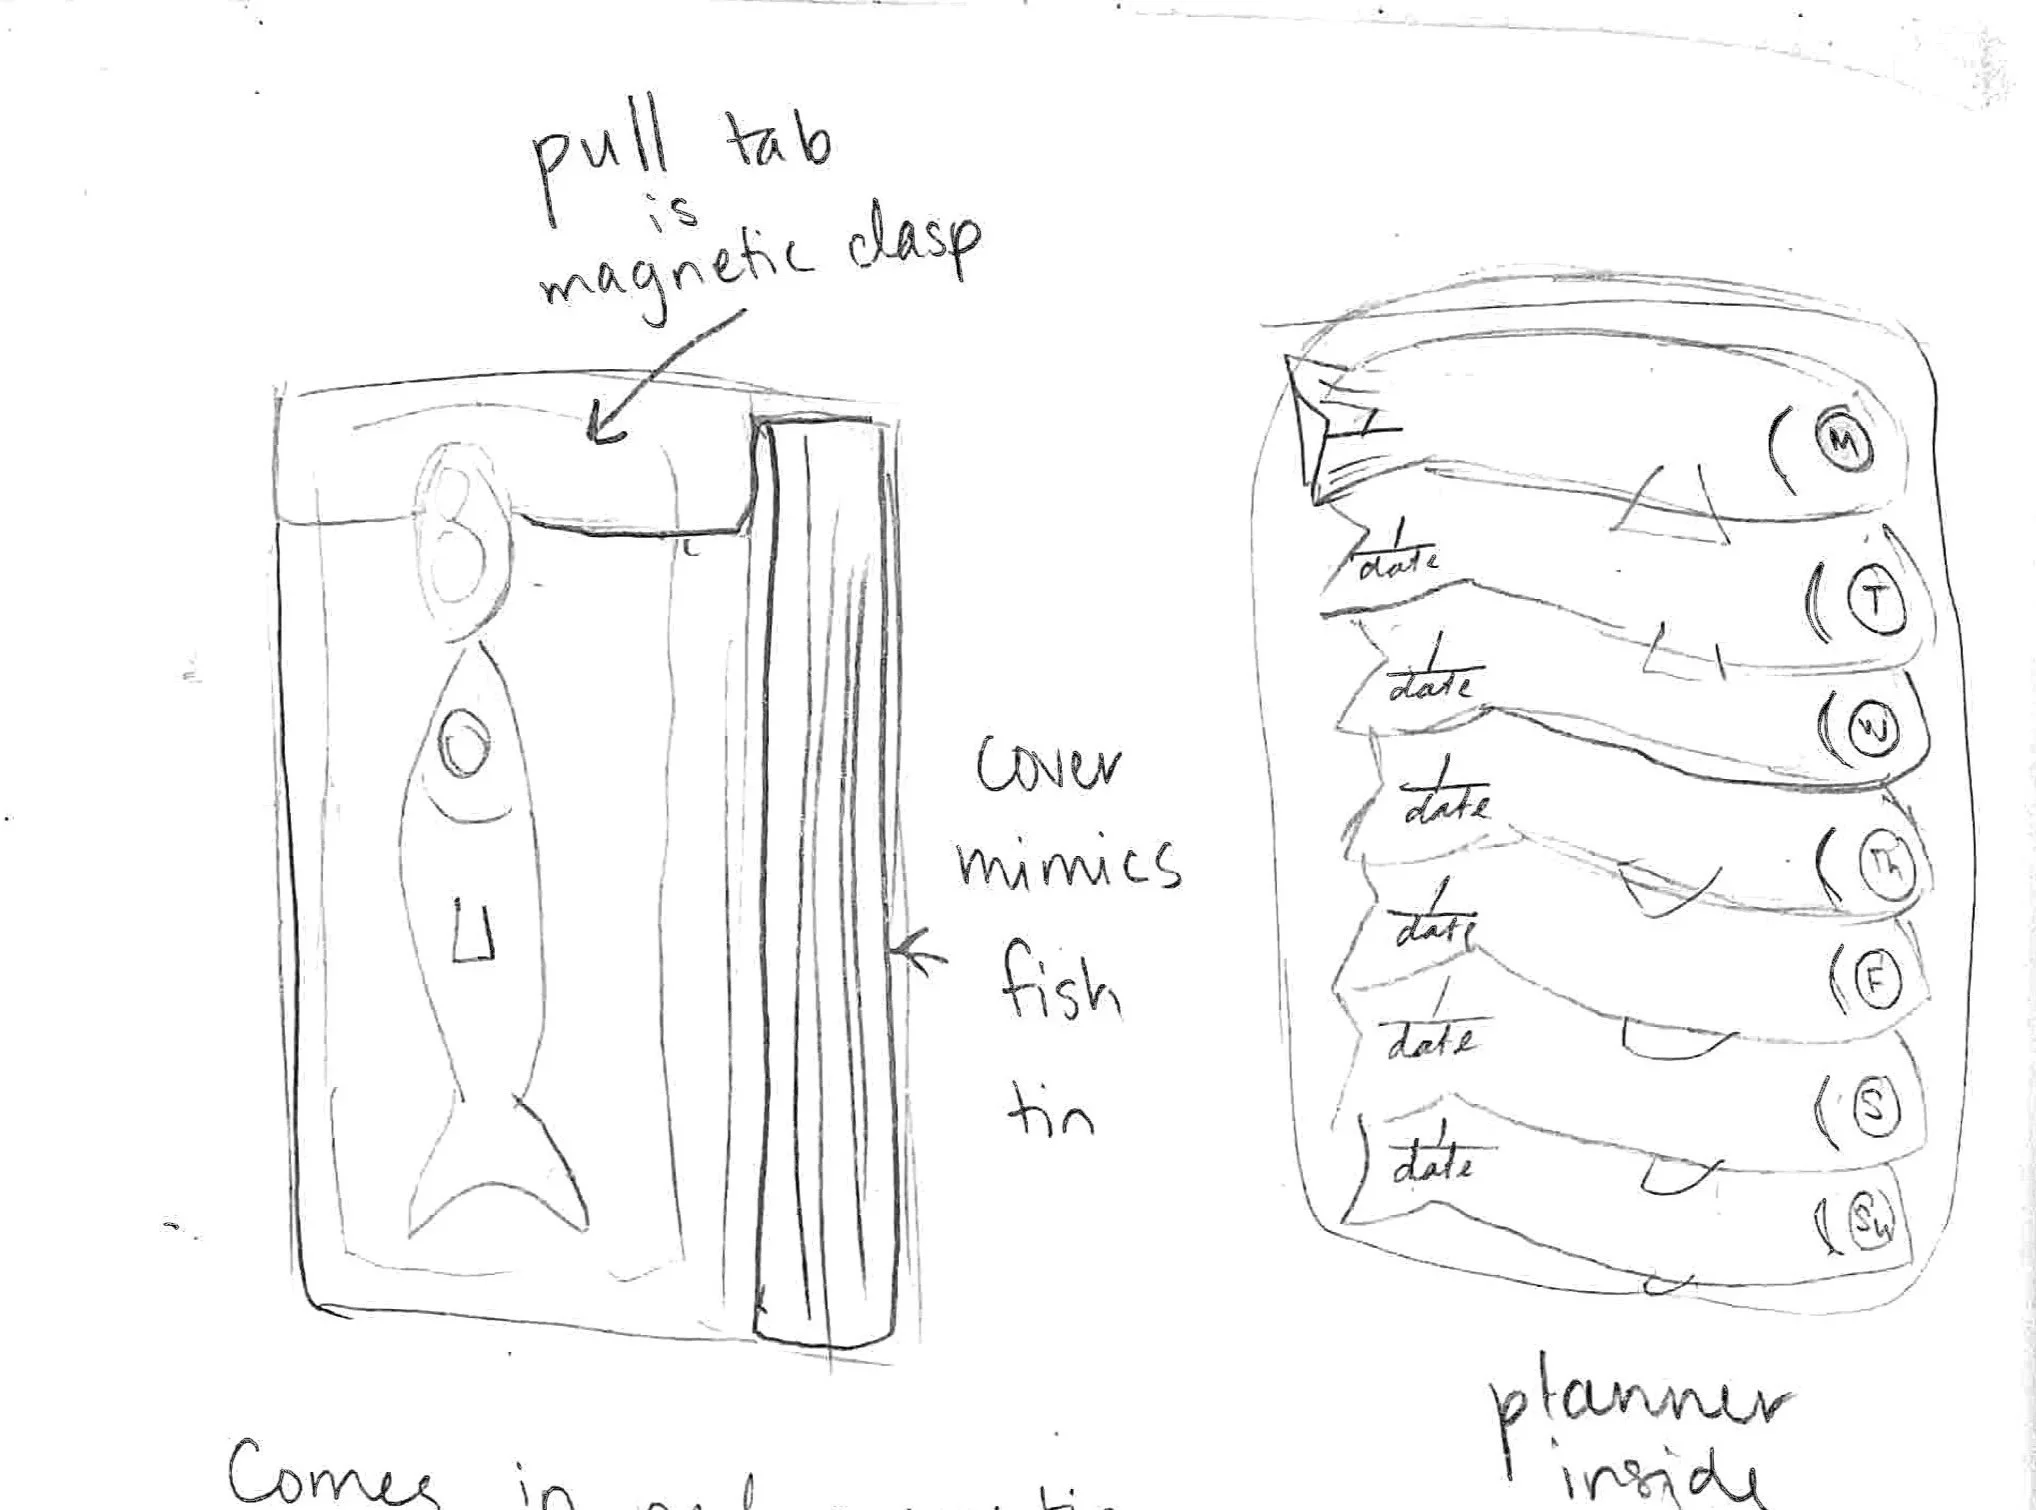 pull tab
is
magnetic clasp
cover
mimics
fish
tin
M
T
/
date
W
/
date
Th
/
date
F
/
date
S
/
date
Su
/
date
planner
inside
Comes in